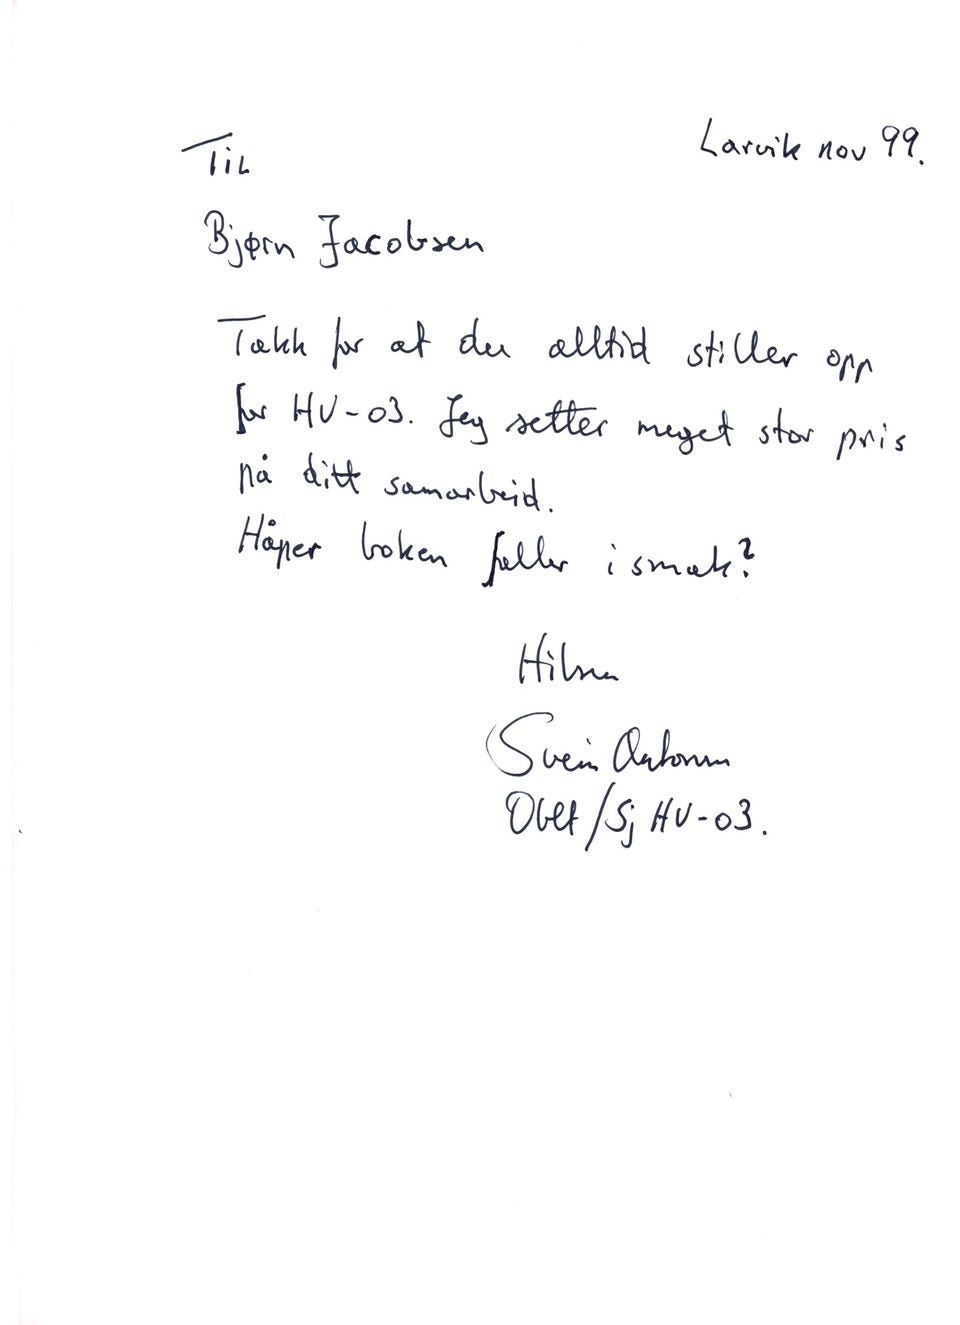 Larvik nov 99.
Til
Bjørn Jacobsen
Takk for at du alltid stiller opp
for HV-03. Jeg setter meget stor pris
på ditt samarbeid.
Håper boken faller i smak?
Hilsen
Svein
Oblt/Sj HV-03.